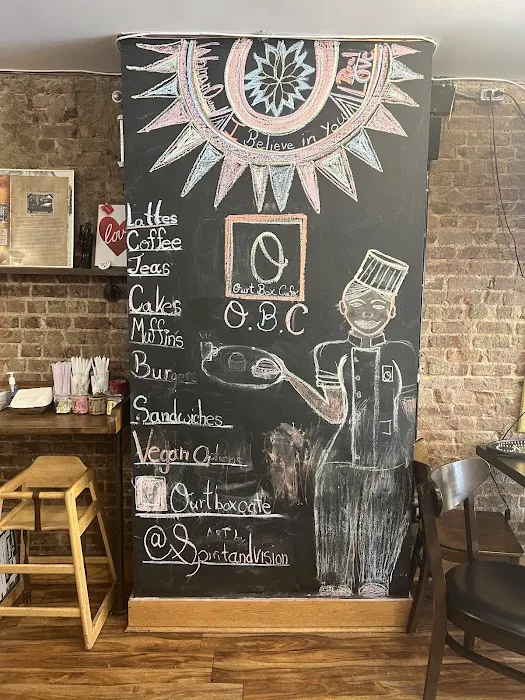 Real
Love
I Believe in You
love
Lattes
Coffee
Teas
Cakes
Muffins
Burgers
Sandwiches
Vegan Options
O
Ourt Box Cafe
O.B.C
Ourtboxcafe
ART by
@Spiritandvision